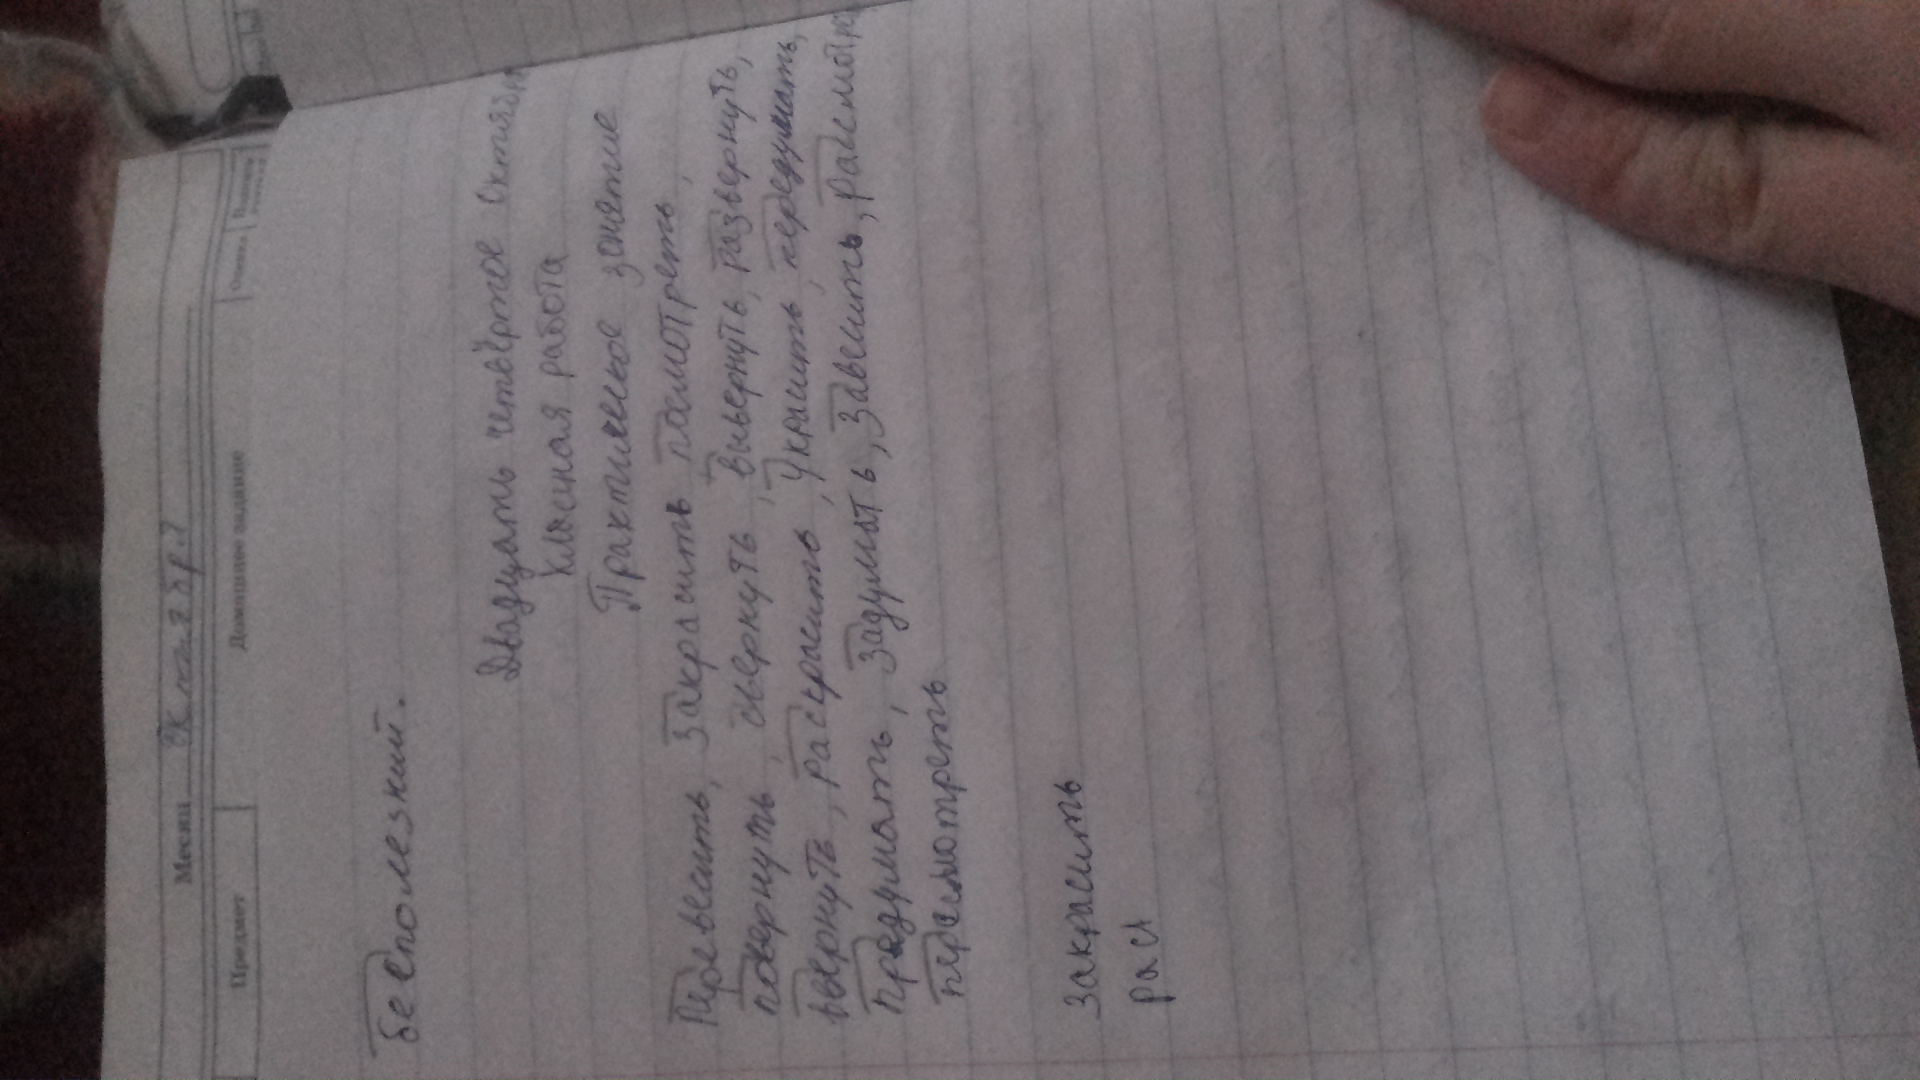 Месяц Октябр.?
Предмет Домашнее задание
бесполезкий.
Двадцать четвёртое Октября
Класиная работа
Практичесное зонетие
Перевесить, Закрасить посмотреть,
повернуть, свернуть, вывернуть, развернуть,
ввернуть, раскрасить, Украсить, передумать,
Предумать, Задумать, Завесить, Рассмотре
пересмотреть
закрасить
расц